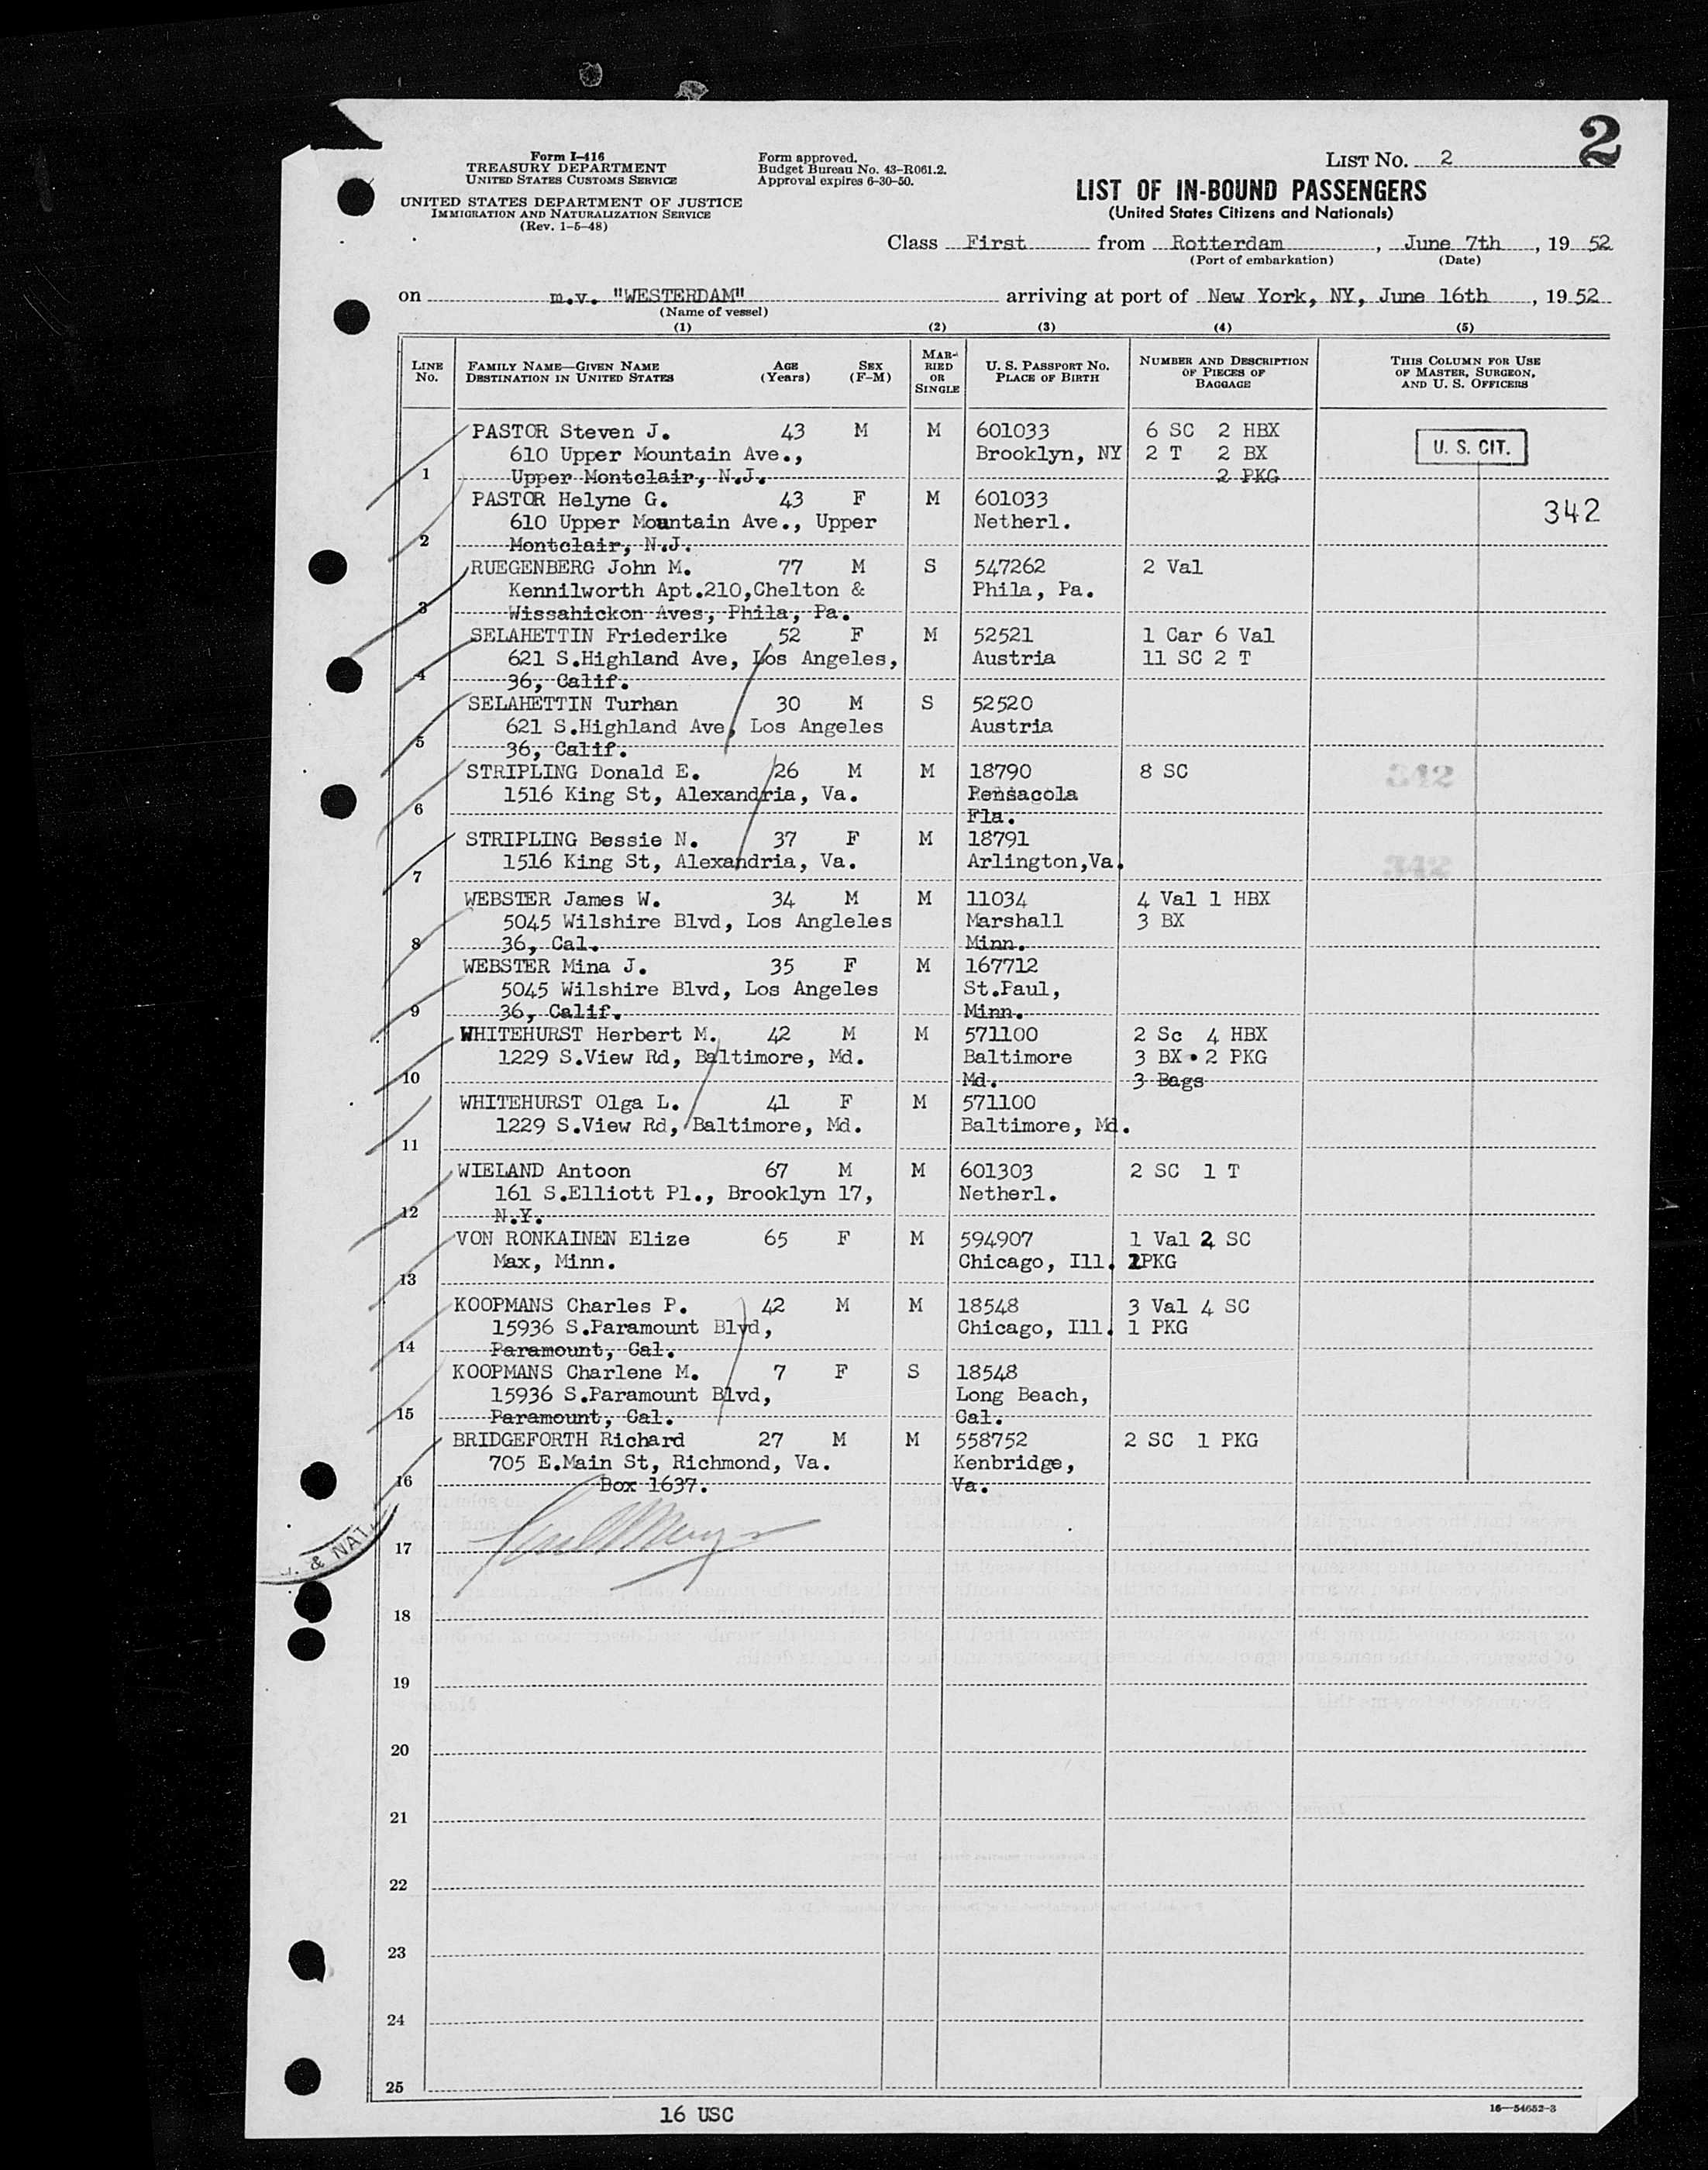 2
Form I-416
TREASURY DEPARTMENT
UNITED STATES CUSTOMS SERVICE
UNITED STATES DEPARTMENT OF JUSTICE
IMMIGRATION AND NATURALIZATION SERVICE
(Rev. 1-5-48)
Form approved.
Budget Bureau No. 43-R061.2.
Approval expires 6-30-50.
LIST NO. 2
LIST OF IN-BOUND PASSENGERS
(United States Citizens and Nationals)
Class First from Rotterdam, June 7th, 19 52
(Port of embarkation) (Date)
on m.v. "WESTERDAM" arriving at port of New York, NY, June 16th, 19 52
(Name of vessel)
(1) (2) (3) (4) (5)
LINE No. FAMILY NAME—GIVEN NAME DESTINATION IN UNITED STATES AGE (Years) SEX (F-M) MARRIED OR SINGLE U. S. PASSPORT NO. PLACE OF BIRTH NUMBER AND DESCRIPTION OF PIECES OF BAGGAGE THIS COLUMN FOR USE OF MASTER, SURGEON, AND U. S. OFFICERS
PASTOR Steven J. 43 M M 601033 6 SC 2 HBX
610 Upper Mountain Ave., Brooklyn, NY 2 T 2 BX U. S. CIT.
1 Upper Montclair, N.J. 2 PKG
PASTOR Helyne G. 43 F M 601033 342
610 Upper Mountain Ave., Upper Netherl.
2 Montclair, N.J.
RUEGENBERG John M. 77 M S 547262 2 Val
Kennilworth Apt.210,Chelton & Phila, Pa.
3 Wissahickon Aves, Phila, Pa.
SELAHETTIN Friederike 52 F M 52521 1 Car 6 Val
621 S.Highland Ave, Los Angeles, Austria 11 SC 2 T
4 36, Calif.
SELAHETTIN Turhan 30 M S 52520
621 S.Highland Ave, Los Angeles Austria
5 36, Calif.
STRIPLING Donald E. 26 M M 18790 8 SC 342
1516 King St, Alexandria, Va. Pensacola
6 Fla.
STRIPLING Bessie N. 37 F M 18791
1516 King St, Alexandria, Va. Arlington,Va. 342
7
WEBSTER James W. 34 M M 11034 4 Val 1 HBX
5045 Wilshire Blvd, Los Angleles Marshall 3 BX
8 36, Cal. Minn.
WEBSTER Mina J. 35 F M 167712
5045 Wilshire Blvd, Los Angeles St.Paul,
9 36, Calif. Minn.
WHITEHURST Herbert M. 42 M M 571100 2 Sc 4 HBX
1229 S.View Rd, Baltimore, Md. Baltimore 3 BX 2 PKG
10 Md. 3 Bags
WHITEHURST Olga L. 41 F M 571100
1229 S.View Rd, Baltimore, Md. Baltimore, Md.
11
WIELAND Antoon 67 M M 601303 2 SC 1 T
161 S.Elliott Pl., Brooklyn 17, Netherl.
12 N.Y.
VON RONKAINEN Elize 65 F M 594907 1 Val 2 SC
Max, Minn. Chicago, Ill. 1PKG
13
KOOPMANS Charles P. 42 M M 18548 3 Val 4 SC
15936 S.Paramount Blvd, Chicago, Ill. 1 PKG
14 Paramount, Cal.
KOOPMANS Charlene M. 7 F S 18548
15936 S.Paramount Blvd, Long Beach,
15 Paramount, Cal. Cal.
BRIDGEFORTH Richard 27 M M 558752 2 SC 1 PKG
705 E.Main St, Richmond, Va. Kenbridge,
16 Box 1637. Va.
& NAT.
17
18
19
20
21
22
23
24
25
16 USC
16—54652-3